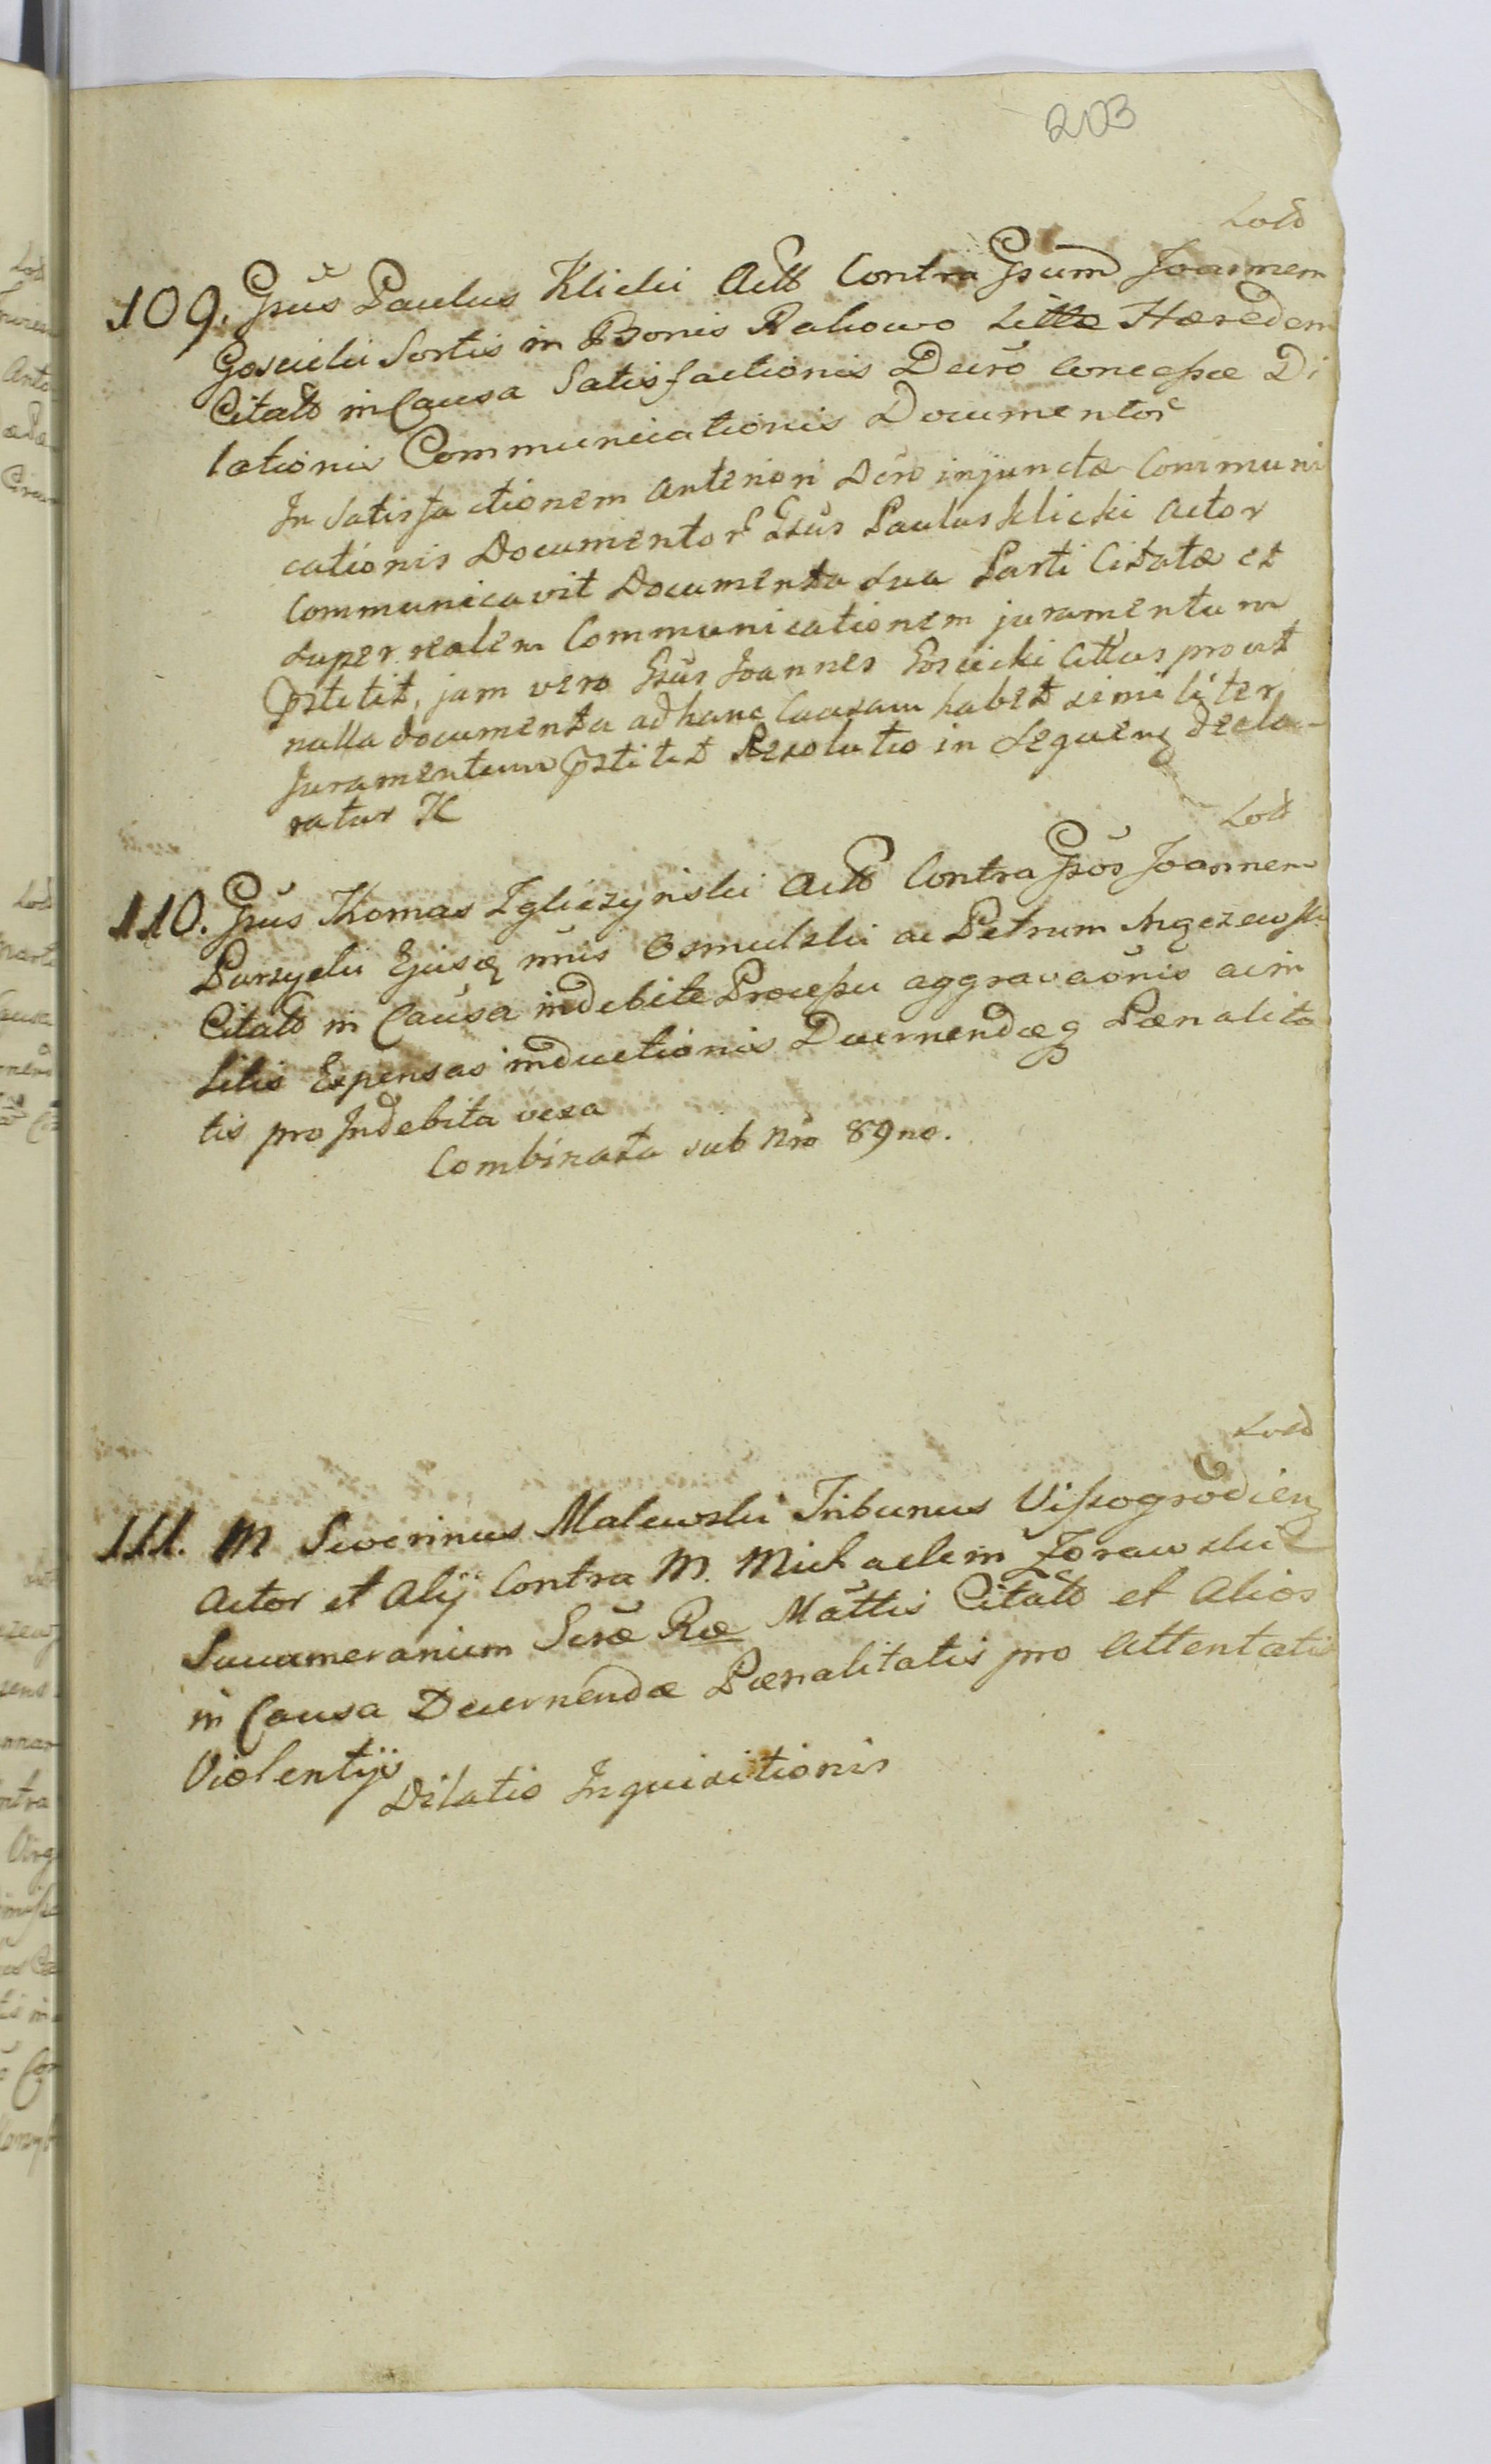 203
109. Gsūs Paulus Klicki Actt Contra Gsum Joannem
Goscicki Sortis in Bonis Rakowo Litta Hæredem
Citatt in Causa Satisfactionis Decrō Concessæ Di
lationis Communicationis Documentor
In Satisfactionem anteriori Dcro injunctæ Communi
cationis Documentor Gsūs Paulus Klicki actor
Communicavit Documenta sua Parti Citatæ et
super realem Communicationem juramentum
pstitit, jam vero Gsūs Joannes Goscicki Cittus prout
nulla documenta ad hanc Causam habet similiter
Juramentum pstitit Resolutio in sequenz decla-
ratur
110. Gsūs Thomas Igliczynski Actt Contra Gsōs Joannem
Purzycki Ejusq Osmulski ac Petrum
Citatt in Causa indebite Processu aggravaōnis ac in
Litis Expensas inductionis Decernendæq Pænalita
tis pro Indebita vexa
Combinata sub Nro 89no.
111. M Severinus Malewski Tribunus Vissogrodienz
Actor et Alij Contra M. Michaelem Zorawski
Succameranium Scræ Ræ Mattis Citatt et Alios
in Causa Decernendæ Pænalitatis pro Attentatis
Violentijs
Dilatio Inquisitionis